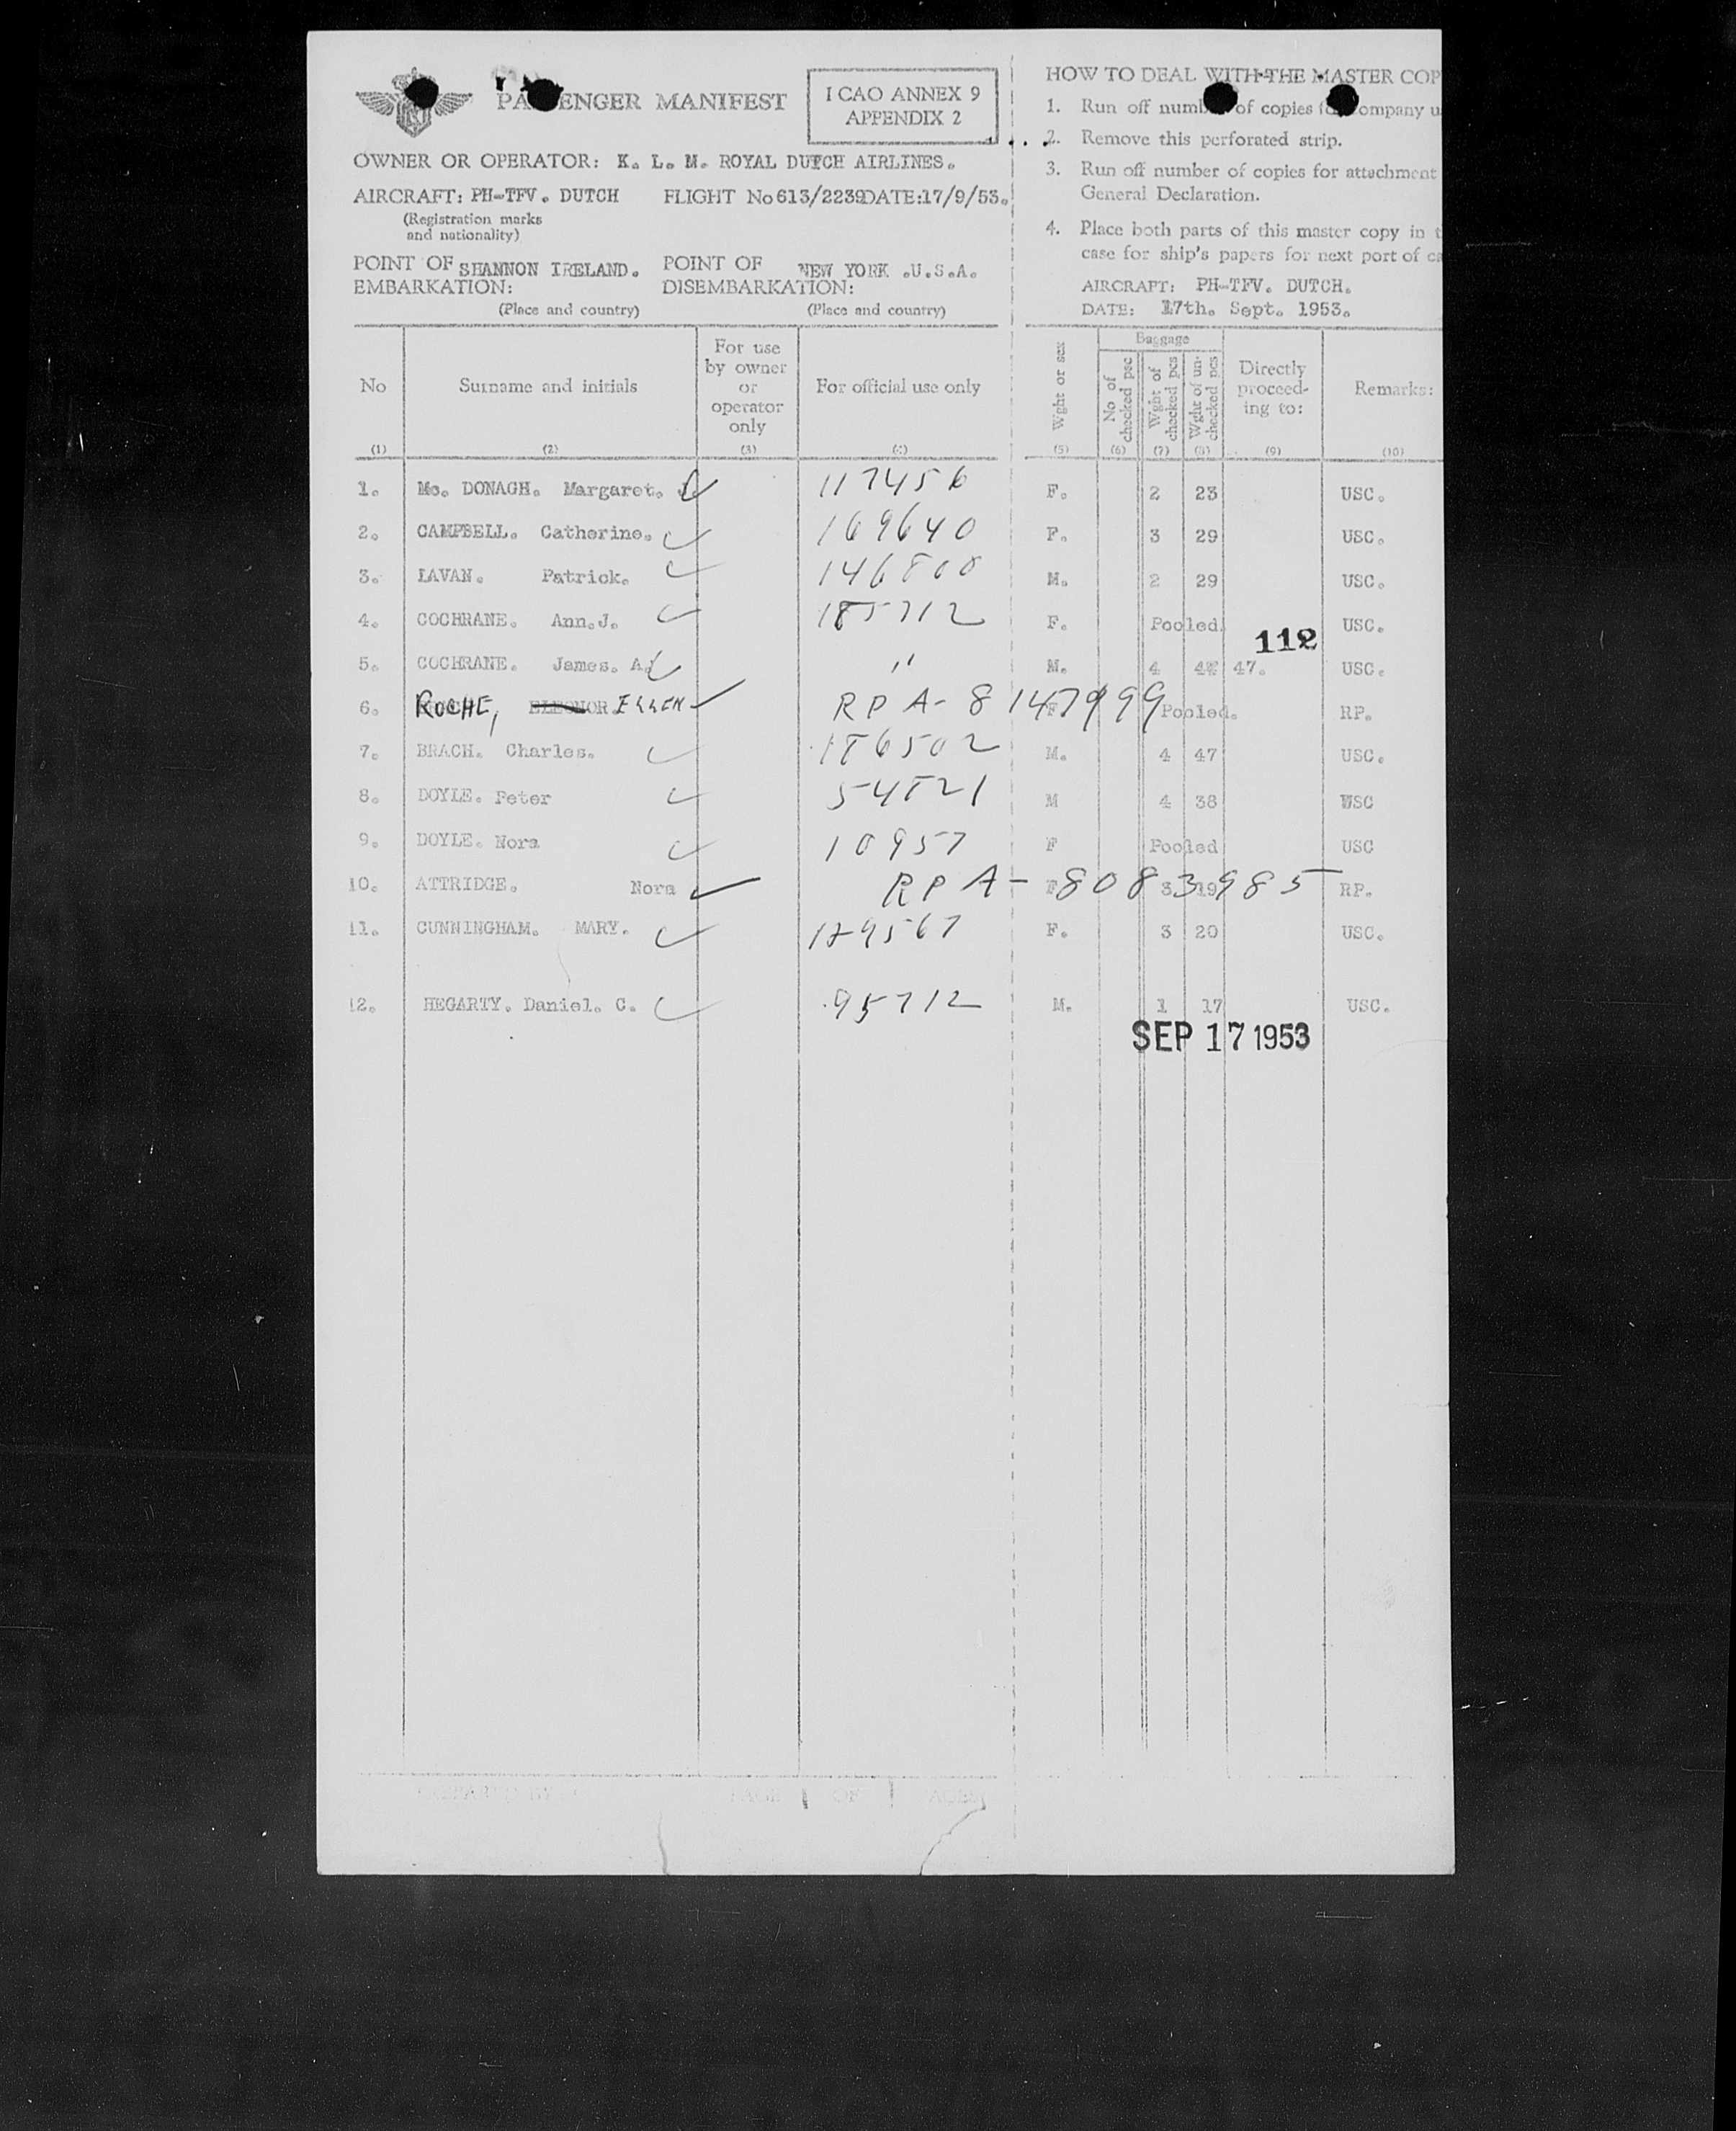 PA ENGER MANIFEST
I CAO ANNEX 9
APPENDIX 2
OWNER OR OPERATOR: K. L. M. ROYAL DUTCH AIRLINES.
AIRCRAFT: PH-TFV. DUTCH FLIGHT No 613/2239 DATE: 17/9/53.
(Registration marks
and nationality)
POINT OF SHANNON IRELAND. POINT OF NEW YORK .U.S.A.
EMBARKATION: DISEMBARKATION:
(Place and country) (Place and country)
HOW TO DEAL WITH THE MASTER COP
1. Run off of copies ompany u
2. Remove this perforated strip.
3. Run off number of copies for attachment
General Declaration.
4. Place both parts of this master copy in t
case for ship's papers for next port of ca
AIRCRAFT: PH-TFV. DUTCH.
DATE: 17th. Sept. 1953.
No Surname and initials For use by owner or operator only For official use only Wght or sex Baggage No of checked psc Wght of checked pcs Wght of un-checked pcs Directly proceed-ing to: Remarks:
(1) (2) (3) (4) (5) (6) (7) (8) (9) (10)
1. Mc. DONAGH. Margaret. 117456 F. 2 23 USC.
2. CAMPBELL. Catherine. 169640 F. 3 29 USC.
3. LAVAN. Patrick. 146800 M. 2 29 USC.
4. COCHRANE. Ann.J. 185712 F. Pooled. USC.
112
5. COCHRANE. James. A. " M. 4 47. USC.
6. ROCHE, ELEONOR. ELLEN RPA-8147999 F. Pooled. RP.
7. BRACH. Charles. 186502 M. 4 47 USC.
8. DOYLE. Peter 54821 M 4 38 USC
9. DOYLE. Nora 10957 F Pooled USC
10. ATTRIDGE. Nora RPA-8083985 F 3 19 RP.
11. CUNNINGHAM. MARY. 129567 F. 3 20 USC.
12. HEGARTY. Daniel. C. 95712 M. 1 17 USC.
SEP 17 1953
PREPARED BY PAGE 1 OF 1 PAGES